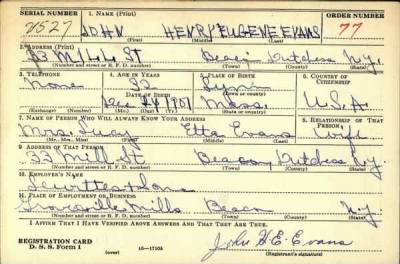 SERIAL NUMBER
1. NAME (Print)
ORDER NUMBER
JOHN HENRY EUGENE EVANS
77
(First) (Middle) (Last)
2. ADDRESS (Print)
33 MILL ST Beacon Dutchess N.Y.
(Number and street or R. F. D. number) (Town) (County) (State)
3. TELEPHONE
4. AGE IN YEARS
5. PLACE OF BIRTH
6. COUNTRY OF CITIZENSHIP
None 32 Lynn
DATE OF BIRTH
Dec 24 1907 Mass. U.S.A.
(Exchange) (Number) (Mo.) (Day) (Yr.) (State or country)
7. NAME OF PERSON WHO WILL ALWAYS KNOW YOUR ADDRESS
8. RELATIONSHIP OF THAT PERSON
Mrs. Lucy Etta Evans wife
(Mr., Mrs., Miss) (First) (Middle) (Last)
9. ADDRESS OF THAT PERSON
33 Mill St Beacon Dutchess N.Y.
(Number and street or R. F. D. number) (Town) (County) (State)
10. EMPLOYER'S NAME
11. PLACE OF EMPLOYMENT OR BUSINESS
Groveville Mills Beacon N.Y.
(Number and street or R. F. D. number) (Town) (County) (State)
I AFFIRM THAT I HAVE VERIFIED ABOVE ANSWERS AND THAT THEY ARE TRUE.
REGISTRATION CARD
D. S. S. Form 1
(over)
16—17105
John H E. Evans
(Registrant's signature)